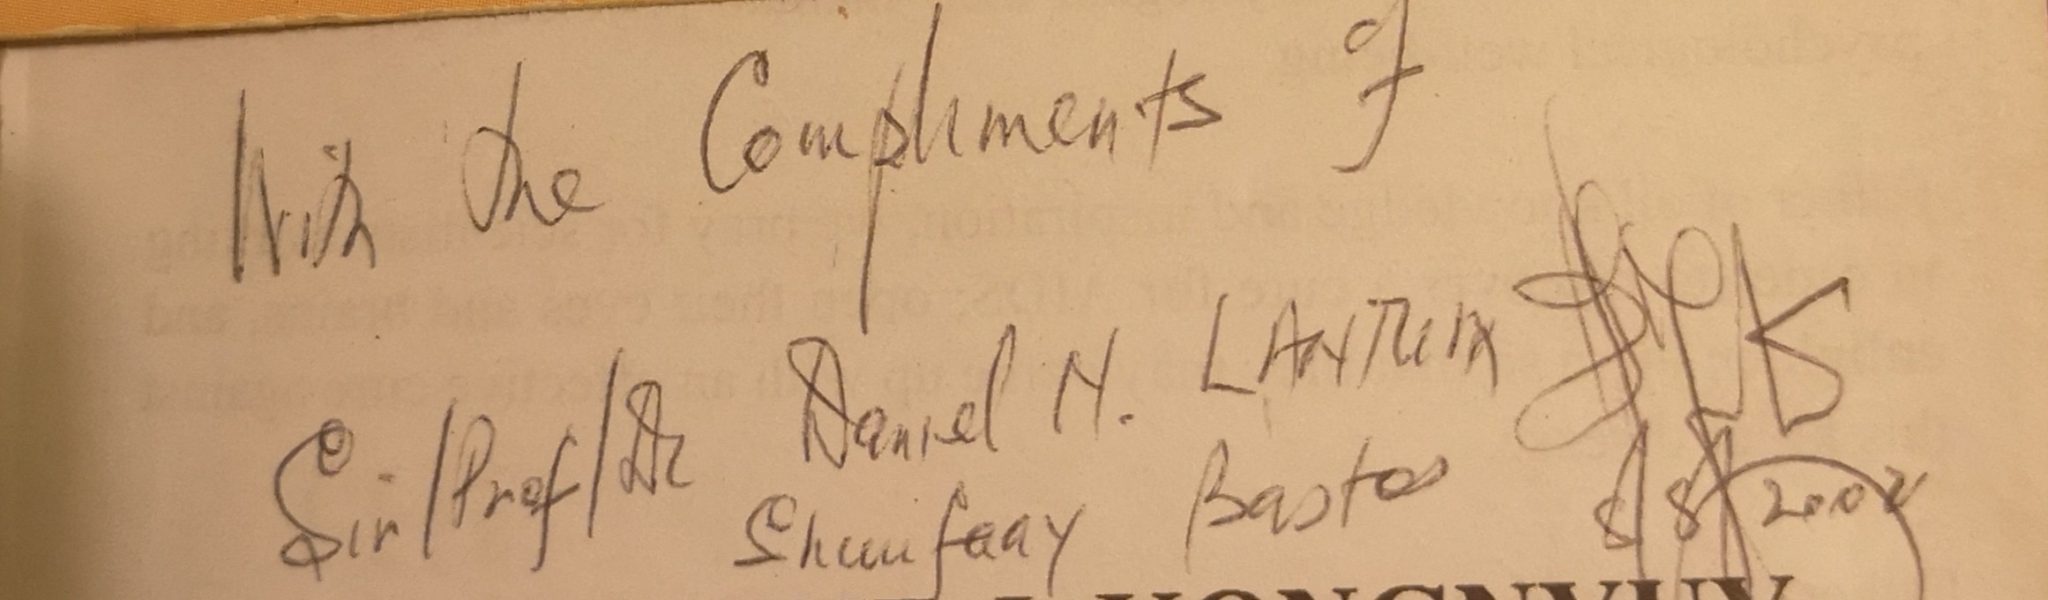 With the Compliments of
Sir/Prof/Dr Daniel N. LANTUM
Shuufaay Bastos 8/8/2002